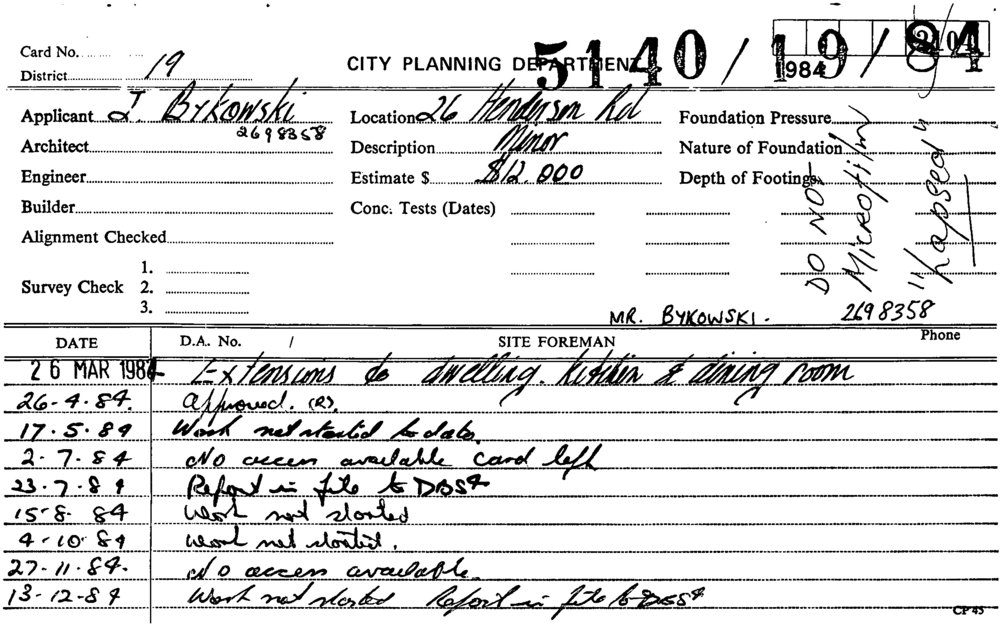 Card No.
District 19
CITY PLANNING DEPARTMENT
5140/19/84
1984
Applicant J. BYKOWSKI
2698358
Architect
Engineer
Builder
Alignment Checked
Survey Check 1.
2.
3.
Location 26 Henderson Rd
Description Minor
Estimate $ $12.000
Conc. Tests (Dates)
Foundation Pressure
Nature of Foundation
Depth of Footings
DO NOT
MICROFILM
"Lapsed"
MR. BYKOWSKI. 2698358
DATE D.A. No. / SITE FOREMAN Phone
26 MAR 1984 Extensions to dwelling. kitchen & dining room
26-4-84. Approved. (R).
17.5.84 Work not started to date.
2-7-84 No access available card left
23-7-84 Report in file to DBS4
15-8-84 Work not started
4-10-84 Work not started.
27-11-84. No access available.
13-12-84 Work not started Report in file to DBS4
CP 45